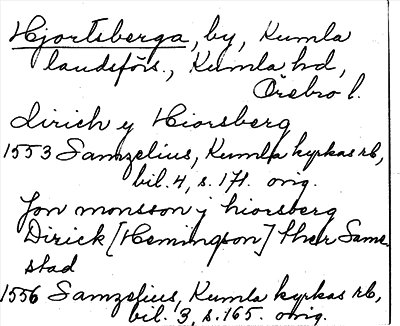 Hjortsberga, by, Kumla
landsförs., Kumla hd,
Örebro l.
dirich y Hiorsberg
1553 Samzelius, Kumla kyrkas rb,
bil. 4, s. 171. orig.
Jon monsson j hiorsberg
Dirick [Hemingson] ther Same-
stad
1556 Samzelius, Kumla kyrkas rb,
bil. 3, s. 165. orig.